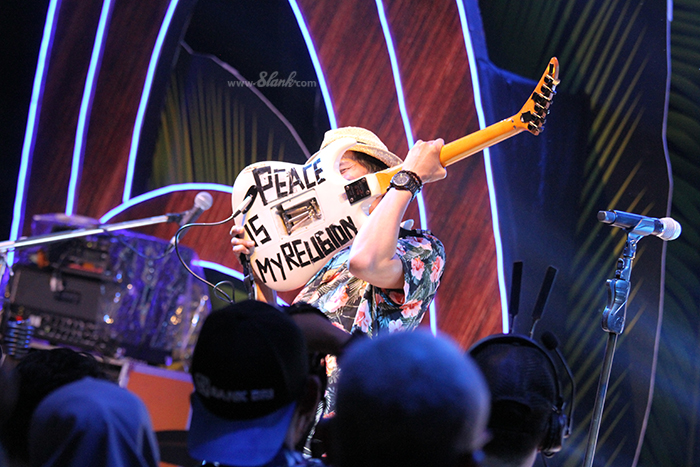 www.Slank.com
PEACE
IS
MY RELIGION
BANK BRI